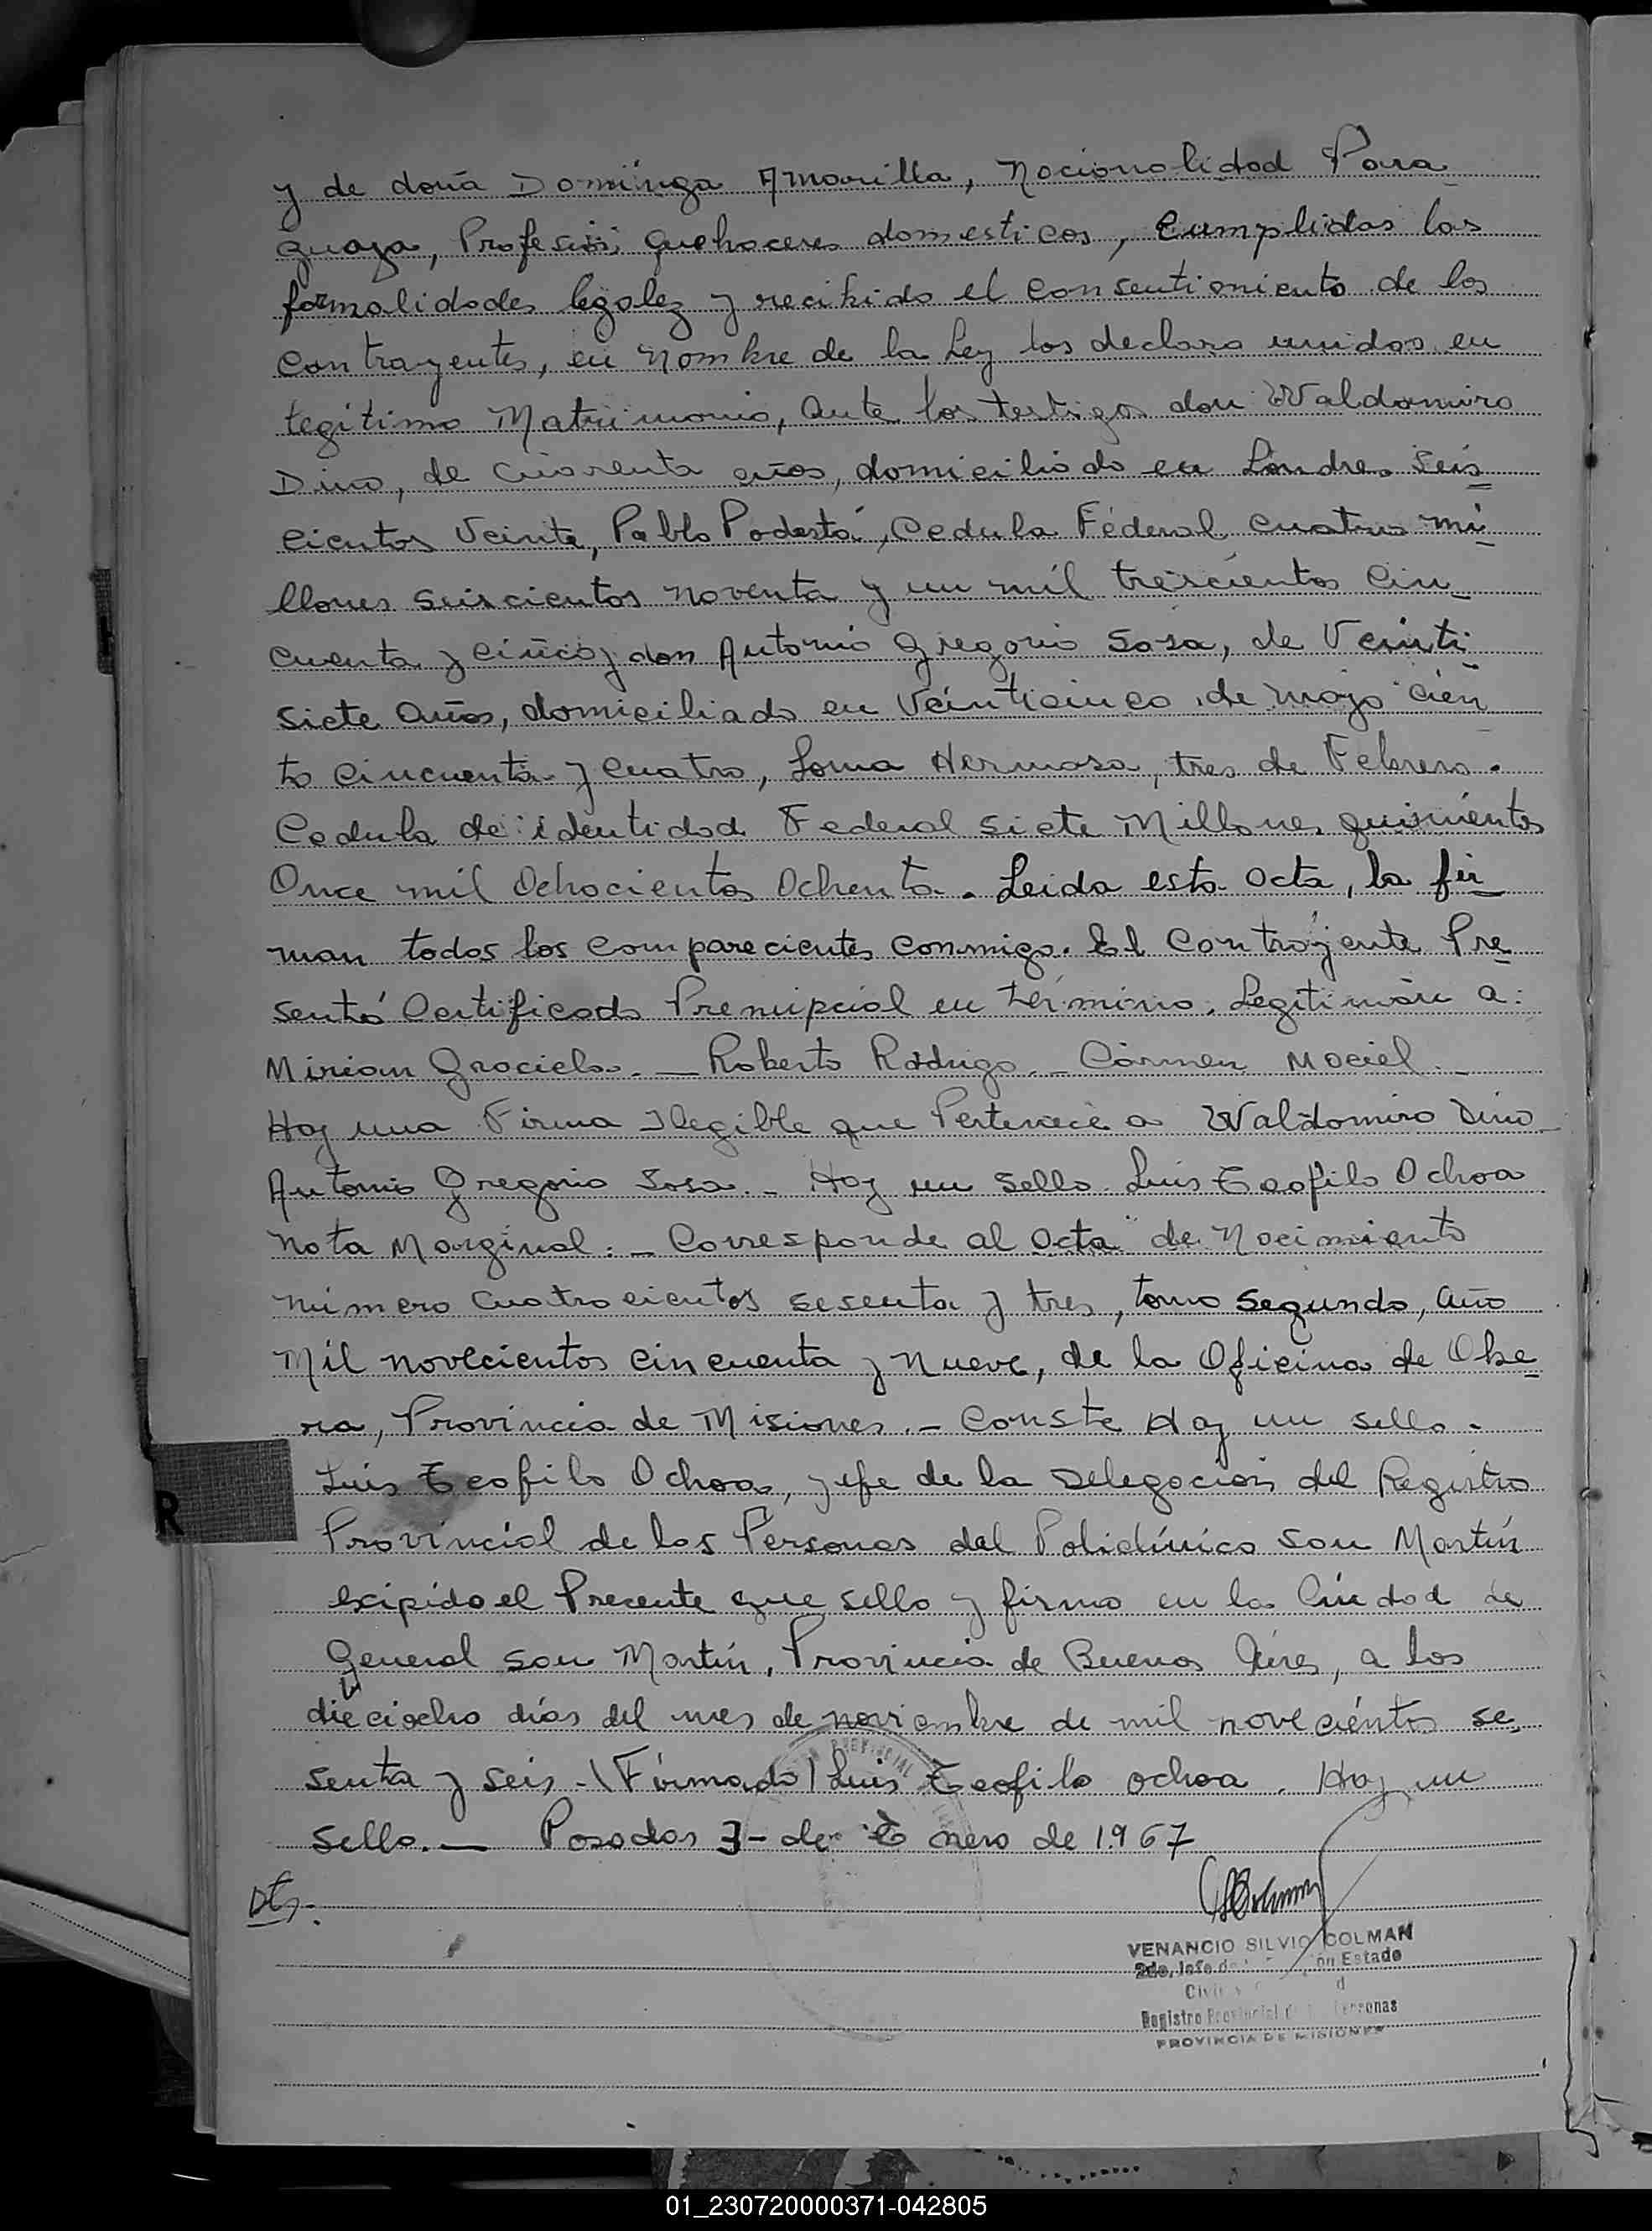 y de doña Dominga Amarilla, Nacionalidad Para
guaya, Profesión quehaceres domesticos, Cumplidas las
formalidades legales y recibido el consentimiento de los
contrayentes, en Nombre de la Ley los declaro unidos en
legítimo Matrimonio, ante los testigos don Waldomiro
Dino, de cuarenta años, domiciliado en Londres Seis
cientos Veinte, Pablo Podestá, Cedula Federal cuatro mi
llones seiscientos noventa y un mil trescientos cin_
cuenta y cinco y don Antonio Gregorio Sosa, de Veinti
siete años, domiciliado en Veinticinco de mayo cien
to cincuenta y cuatro, Loma Hermosa, tres de Febrero.
Cedula de identidad Federal siete Millones quinientos
Once mil Ochocientos Ochenta. Leida esta acta, la fir
man todos los comparecientes conmigo. El Contrayente Pre
sentó Certificado Prenupcial en término. Legitiman a:
Miriam Graciela. _ Roberto Rodrigo. _ Carmen Maciel. _
Hay una Firma Ilegible que Pertenece a Waldomiro Dino
Antonio Gregorio Sosa. _ Hay un sello. Luis Teofilo Ochoa
Nota Marginal: _ Corresponde al acta de Nacimiento
número cuatrocientos sesenta y tres, tomo segundo, año
Mil novecientos cincuenta y nueve, de la Oficina de Obe_
ra, Provincia de Misiones. - Conste Hay un sello.
Luis Teofilo Ochoa, Jefe de la Delegación del Registro
Provincial de las Personas del Policlínico San Martín
expido el Precente que sello y firmo en la Ciudad de
General San Martín, Provincia de Buenos Aires, a los
dieciocho días del mes de noviembre de mil novecientos se_
senta y seis. (Firmado) Luis Teofilo Ochoa. Hay un
sello. _ Posadas 3 - de Enero de 1967
VENANCIO SILVIO COLMAN
2do. Jefe de Estado
Civil
Registro Provincial de Personas
PROVINCIA DE MISIONES
R
01_230720000371-042805